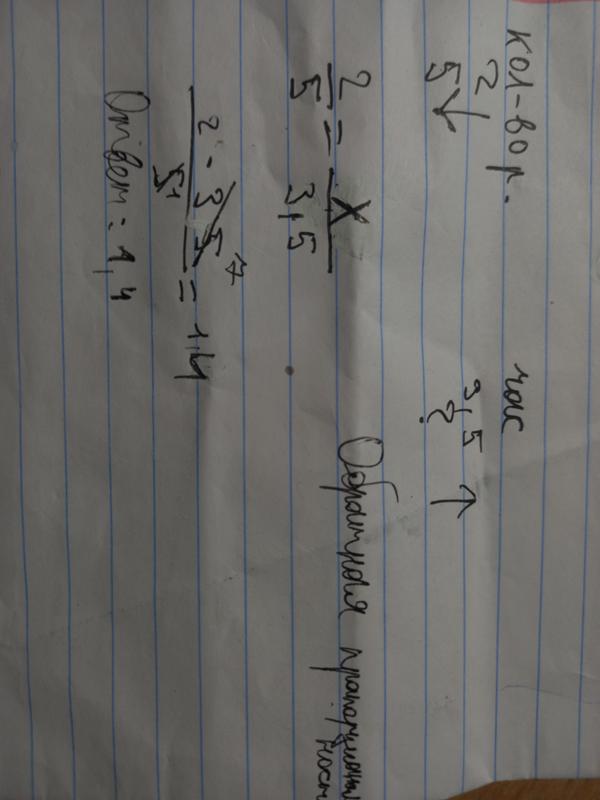 кол-во р. час
2 3,5
5 ↓ ? ↑
2/5 = X/3,5
Обратная прапорциональ
ность
2 · 3,5 7 / 5 1 = 1,4
Ответ: 1,4